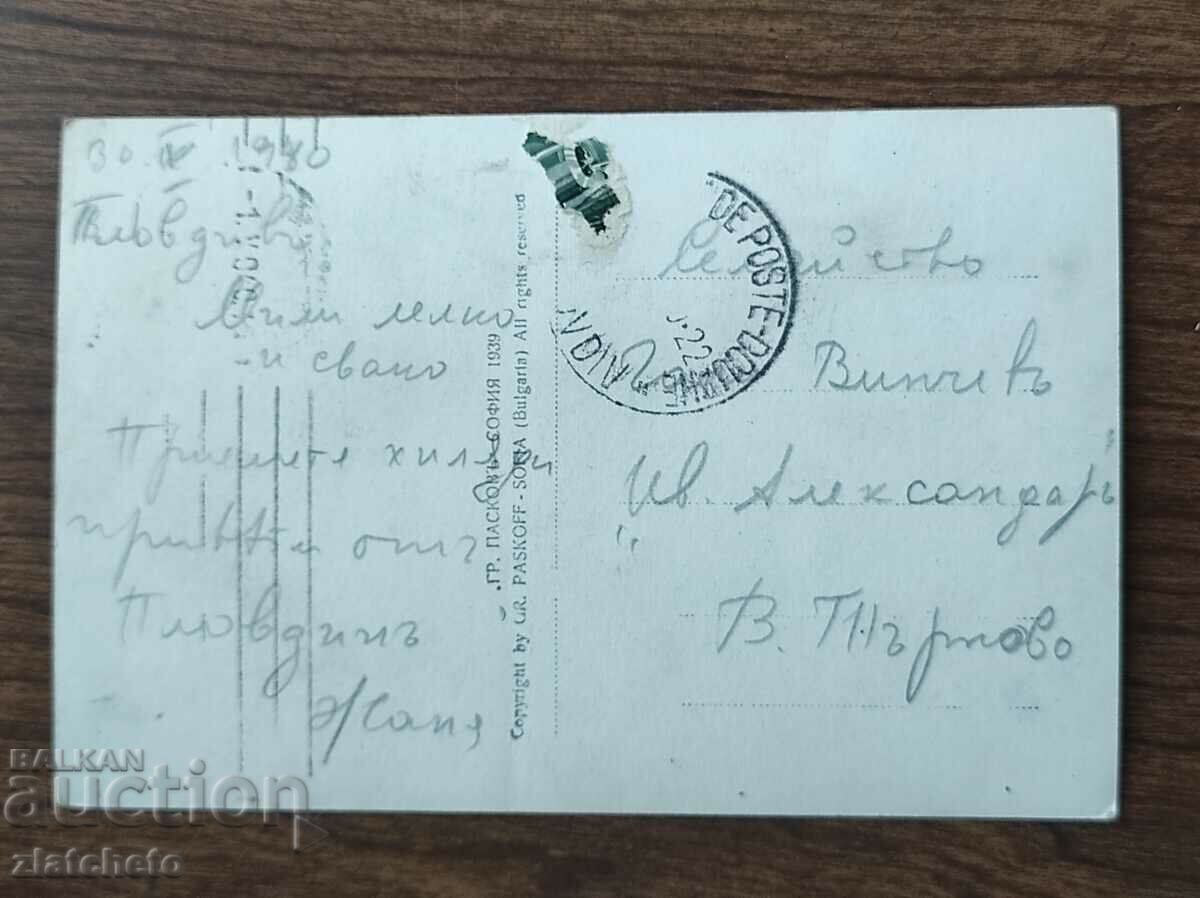 30. V 1940
Пловдивъ
Мили лелко
и свако
Приемете хиляди
привети отъ
Пловдивъ
Жана
ГР. ПАСКОВЪ СОФИЯ 1939
Copyright by GR. PASKOFF - SOFIA (Bulgaria) All rights reserved
DE POSTE-DOUANE
Семейство
Винчевъ
Ив. Александаръ
В. Търново
BALKAN
auction
zlatcheto